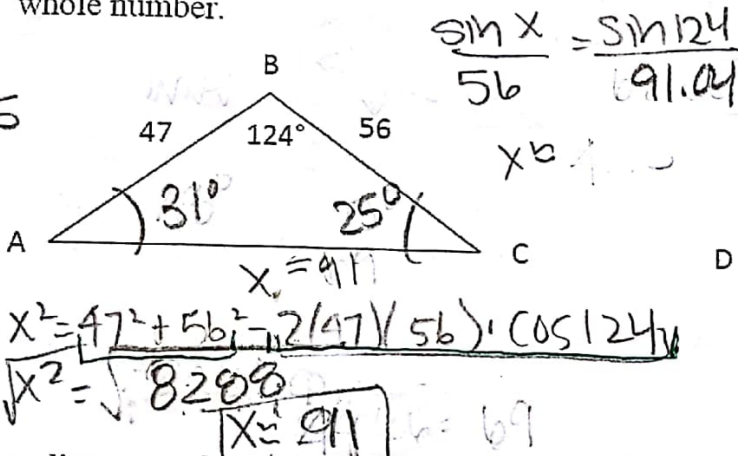 whole number.
sin x / 56 = sin 124 / 91.04
B
47
124°
56
31°
25°
A
C
D
x = 91
x² = 47² + 56² - 2(47)(56) · cos 124
√x² = √8288
x ≈ 91